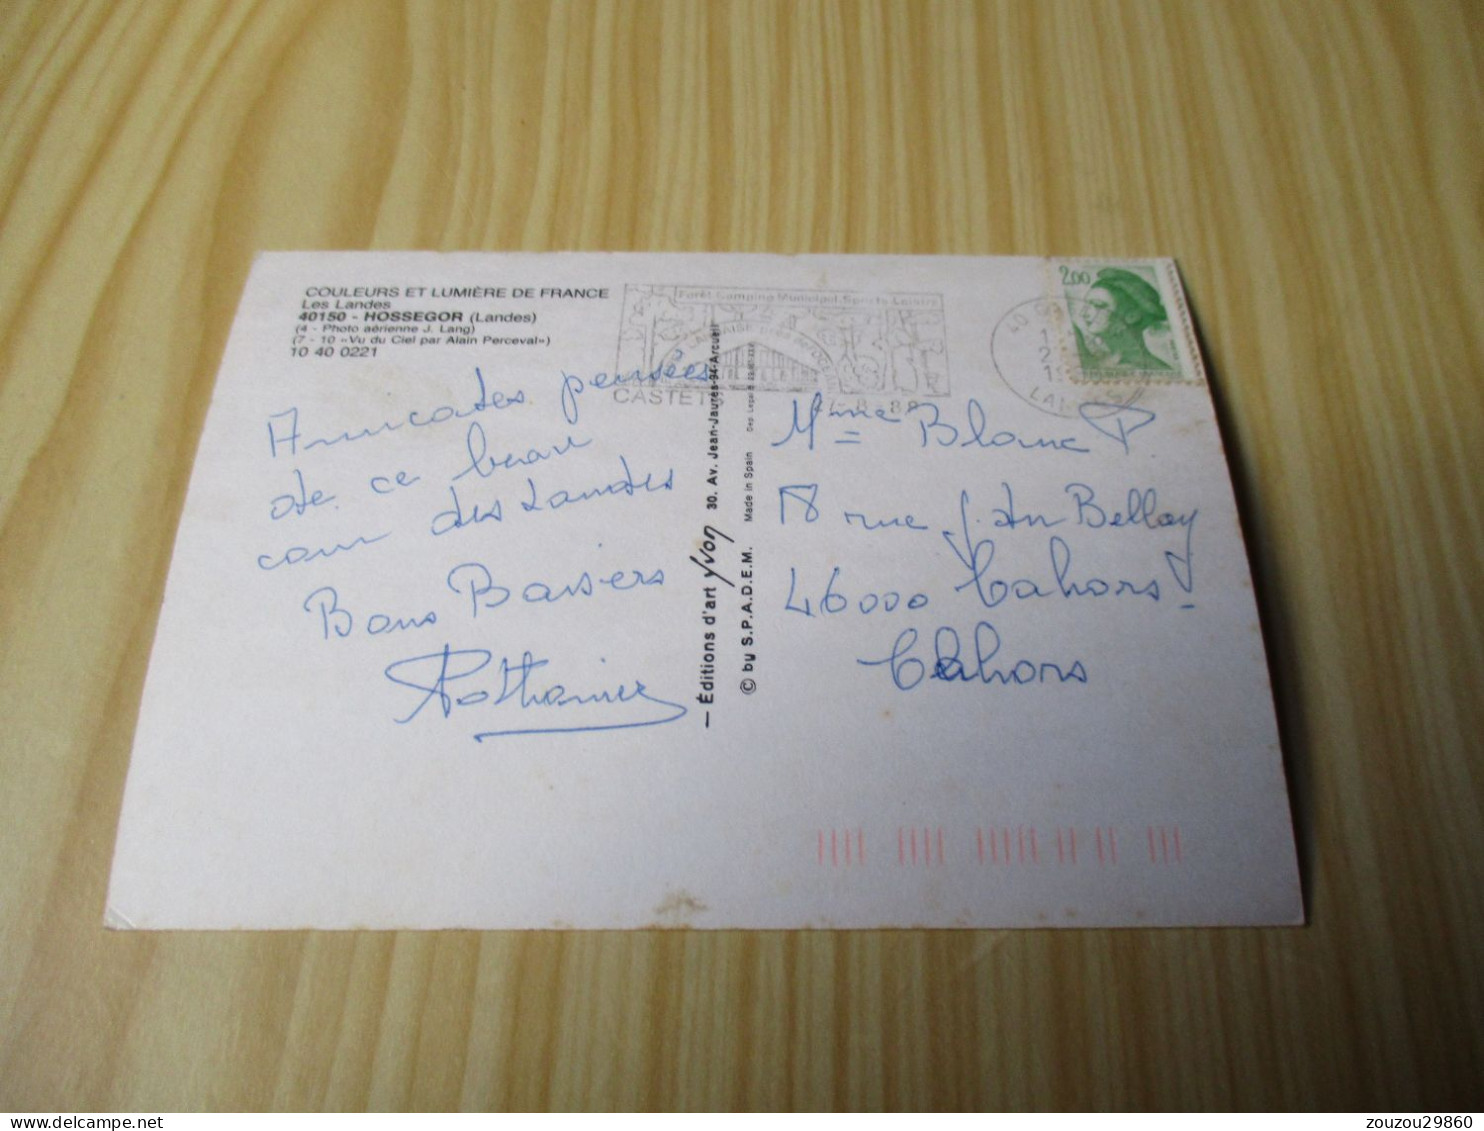 COULEURS ET LUMIÈRE DE FRANCE
Les Landes
40150 - HOSSEGOR (Landes)
(4 - Photo aérienne J. Lang)
(7 - 10 «Vu du Ciel par Alain Perceval»)
10 40 0221
Amicales pensées
de ce beau
coin des Landes
Bons Baisers
— Éditions d'art Yvon 30. Av. Jean-Jaurès-94-Arcueil
© by S.P.A.D.E.M. Made in Spain
Forêt Camping Municipal-Sports Loisirs
CASTETS
2.00
40
LANDES
Mme Blanc P
18 rue J. du Bellay
46000 Cahors
Cahors
zouzou29860